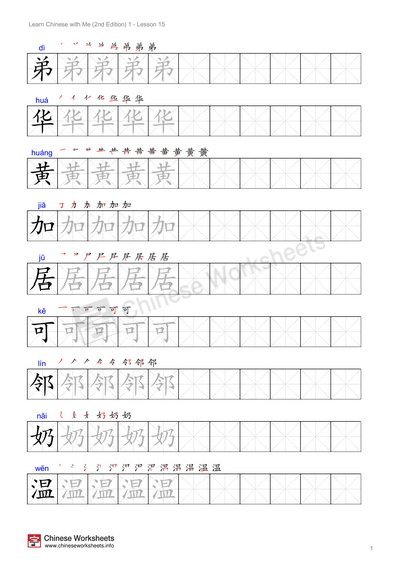 Learn Chinese with Me (2nd Edition) 1 - Lesson 15
dì
弟 弟 弟 弟 弟
huá
华 华 华 华 华
huáng
黄 黄 黄 黄 黄
jiā
加 加 加 加 加
jū
居 居 居 居 居
kě
可 可 可 可 可
lín
邻 邻 邻 邻 邻
nǎi
奶 奶 奶 奶 奶
wēn
温 温 温 温 温
Chinese Worksheets
Chinese Worksheets
www.chineseworksheets.info
1